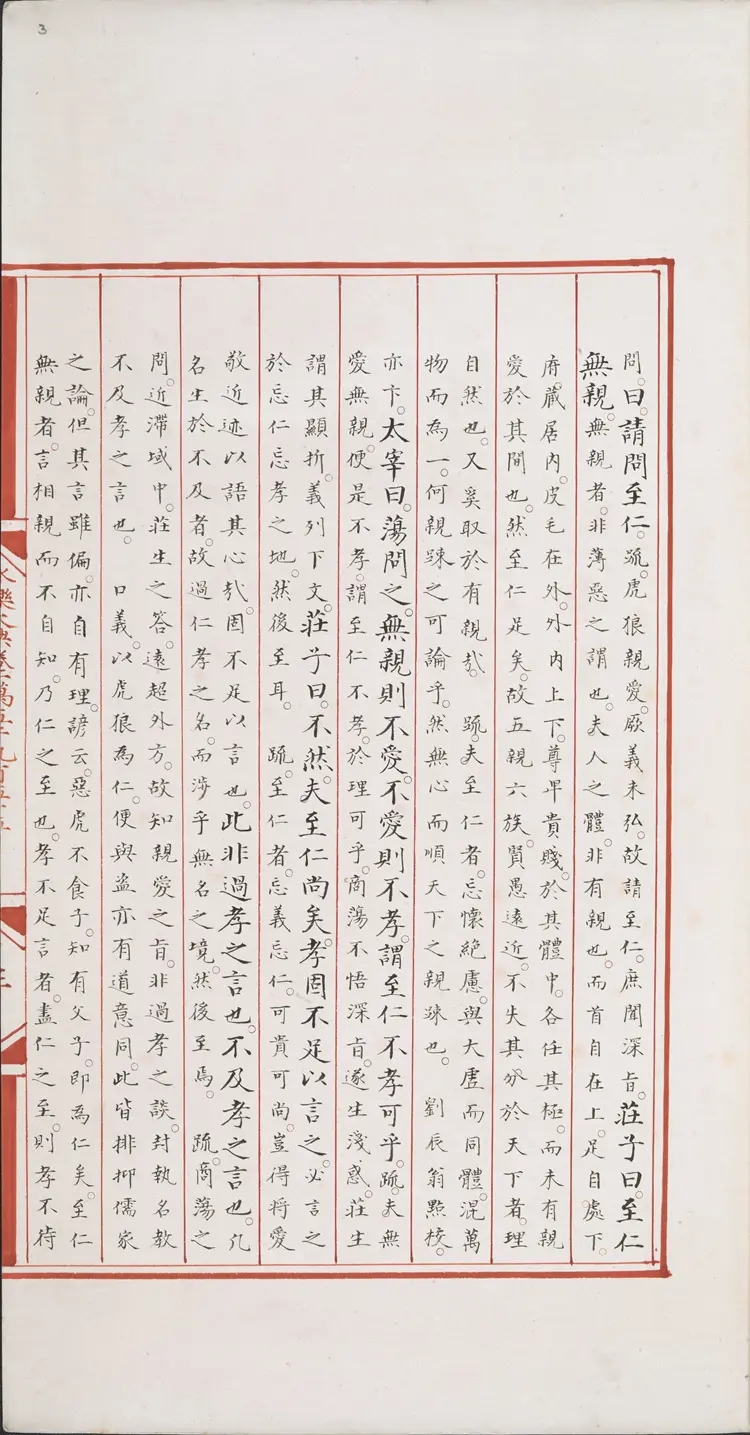 3
問。曰。請問至仁。疏。虎狼親愛。厥義未弘。故請至仁。庶聞深旨。莊子曰。至仁
無親。無親者。非薄惡之謂也。夫人之體。非有親也。而首自在上。足自處下。
府藏居內。皮毛在外。外內上下。尊卑貴賤。於其體中。各任其極。而未有親
愛於其間也。然至仁足矣。故五親六族。賢愚遠近。不失其分於天下者。理
自然也。又奚取於有親哉。 疏。夫至仁者。忘懷絕慮。與大虛而同體。混萬
物而為一。何親踈之可論乎。然無心而順天下之親踈也。 劉辰翁點校。
亦卞。太宰曰。蕩問之。無親則不愛。不愛則不孝。謂至仁不孝可乎。疏。夫無
愛無親。便是不孝。謂至仁不孝。於理可乎。商蕩不悟深旨。遂生淺惑。莊生
謂其顯折。義列下文。莊子曰。不然。夫至仁尚矣。孝固不足以言之。必言之
於忘仁忘孝之地。然後至耳。 疏。至仁者。忘義忘仁。可貴可尚。豈得將愛
敬近迹以語其心哉。固不足以言也。此非過孝之言也。不及孝之言也。凡
名生於不及者。故過仁孝之名。而涉乎無名之境。然後至焉。 疏。商蕩之
問。近滯域中。莊生之答。遠超外方。故知親愛之旨。非過孝之談。封執名教
不及孝之言也。 口義。以虎狼為仁。便與盜亦有道意同。此皆排抑儒家
之論。但其言雖偏。亦自有理。諺云。惡虎不食子。知有父子。即為仁矣。至仁
無親者。言相親而不自知。乃仁之至也。孝不足言者。盡仁之至。則孝不待